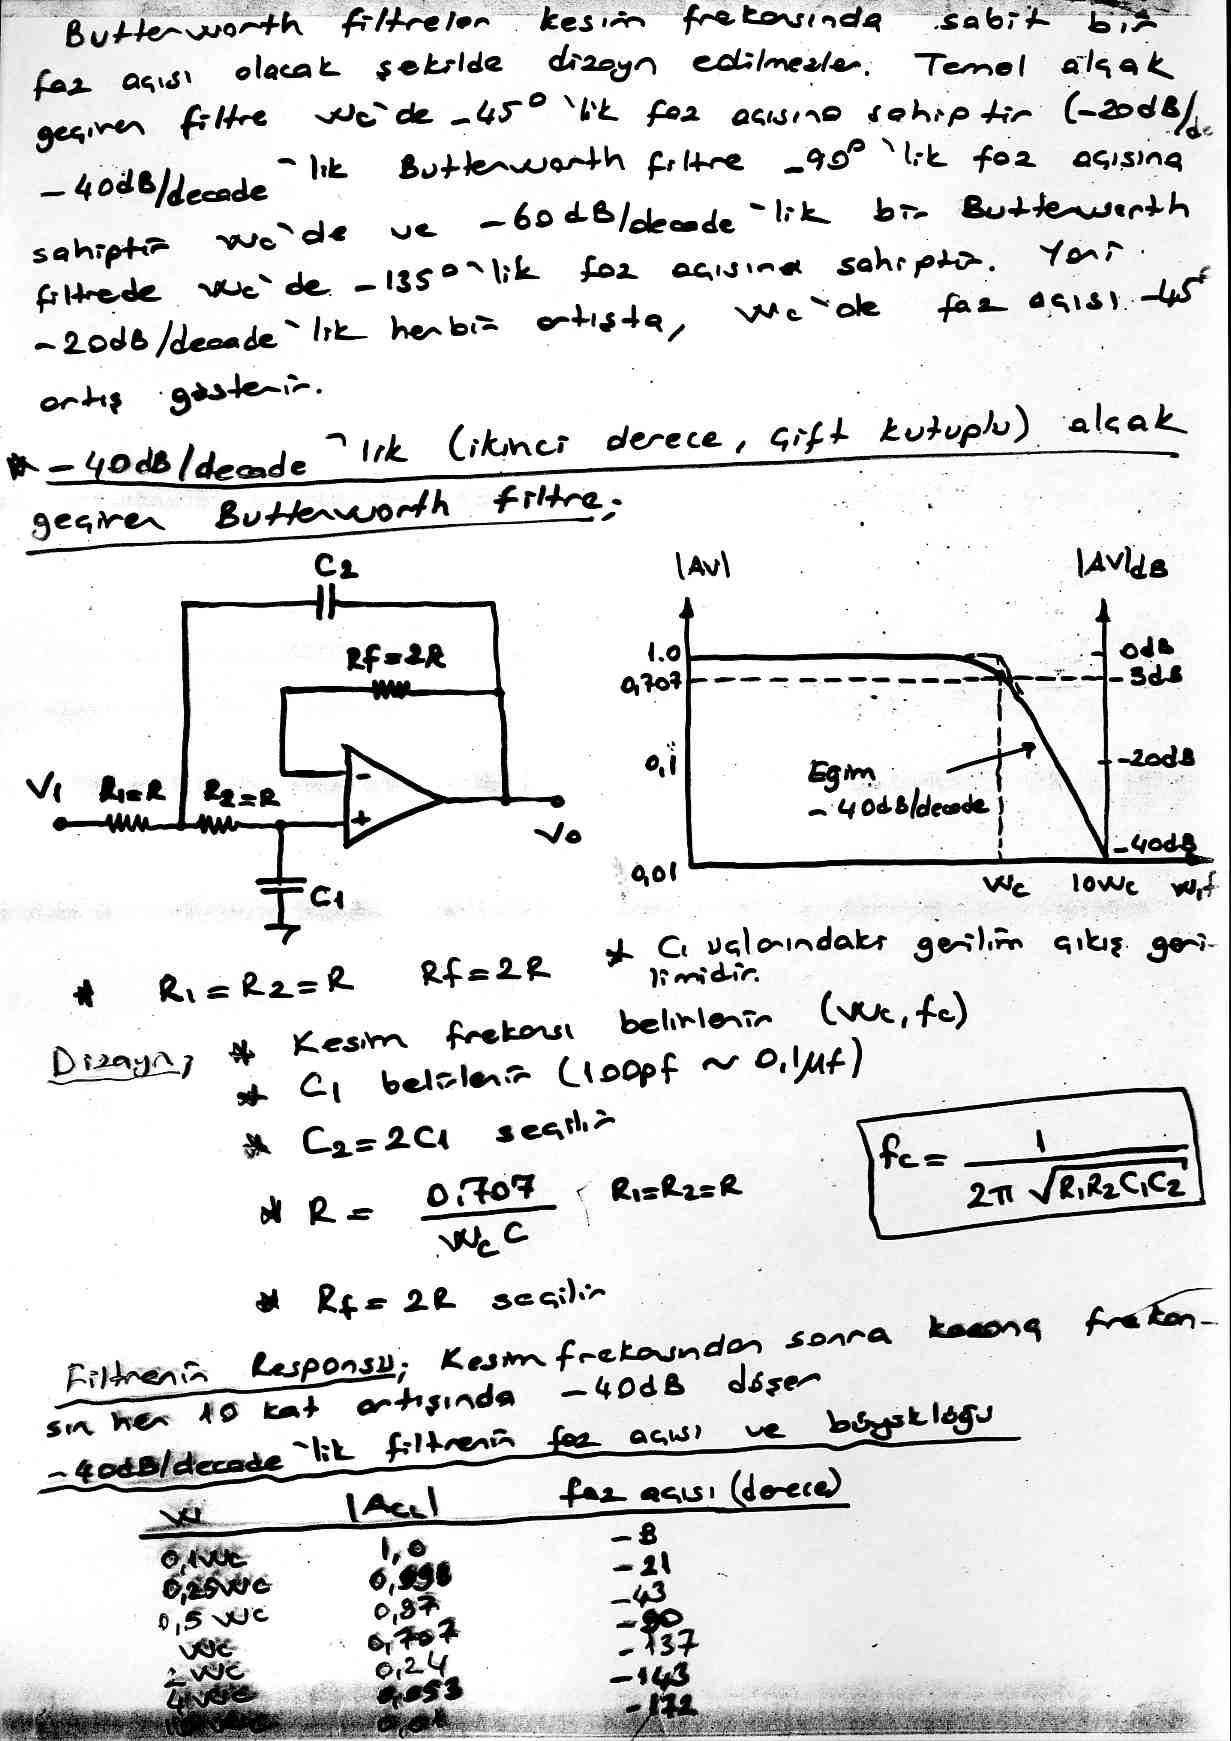 Butterworth filtreler kesim frekansında sabit bir
faz açısı olacak şekilde dizayn edilmezler. Temel alçak
geçiren filtre wc`de -45° `lik faz açısına sahiptir (-20dB/de
-40dB/decade `lik Butterworth filtre -90° `lik faz açısına
sahiptir wc`de ve -60dB/decade `lik bir Butterworth
filtrede wc`de -135° `lik faz açısına sahiptir. Yani
-20dB/decade `lik herbir artışta, wc`de faz açısı -45°
artış gösterir.
* -40dB/decade `lik (ikinci derece, çift kutuplu) alçak
geçiren Butterworth filtre;
C2
Rf=2R
V1 R1=R R2=R
-
+
Vo
C1
|AV| |AV|dB
1.0 0dB
0,707 -3dB
0,1 -20dB
Egim
-40dB/decade
0,01 -40dB
wc 10wc w,f
* R1=R2=R Rf=2R
* C1 uçlarındaki gerilim çıkış geri-
limidir.
Dizayn; * Kesim frekansı belirlenir (wc, fc)
* C1 belirlenir (100pf ~ 0,1µf)
* C2=2C1 seçilir
* R = 0.707 / wc C R1=R2=R
fc = 1 / 2π √R1R2C1C2
* Rf=2R seçilir
Filtrenin Responsu; Kesim frekansından sonra frekan-
sın her 10 kat artışında -40dB düşer
-40dB/decade `lik filtrenin faz açısı ve büyüklüğü
w |ACL| faz açısı (derece)
0,1wc 1,0 -8
0,25wc 0,998 -21
0,5wc 0,87 -43
wc 0,707 -90
2wc 0,24 -137
4wc 0,053 -143
10wc 0,01 -172